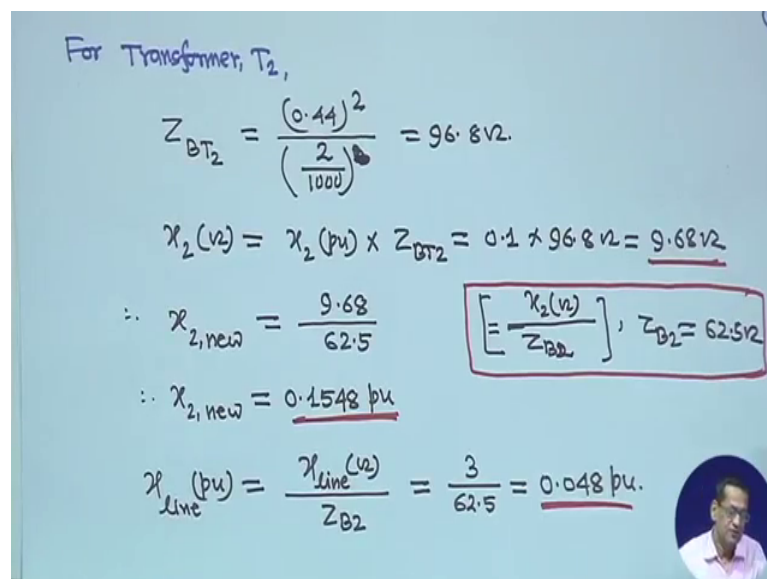 For Transformer, T₂,
Z_BT₂ = (0.44)² / (2/1000) = 96.8 Ω.
x₂(Ω) = x₂(pu) × Z_BT₂ = 0.1 × 96.8 Ω = 9.68 Ω
∴ x₂,new = 9.68 / 62.5 [= x₂(Ω) / Z_B2], Z_B₂ = 62.5 Ω
∴ x₂,new = 0.1548 pu
x_line(pu) = x_line(Ω) / Z_B2 = 3 / 62.5 = 0.048 pu.